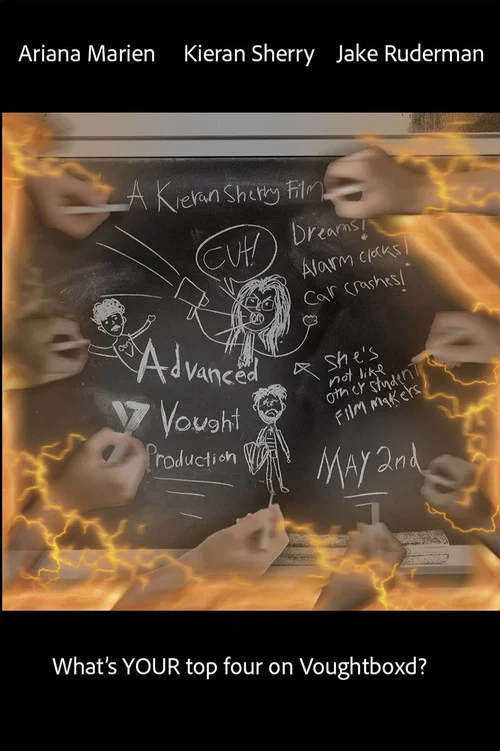 Ariana Marien Kieran Sherry Jake Ruderman
A Kieran Sherry Film
CUT!
Dreams!
Alarm clocks!
Car crashes!
She's
not like
other student
film makers
Advanced
V Vought
Production
MAY 2nd
What's YOUR top four on Voughtboxd?